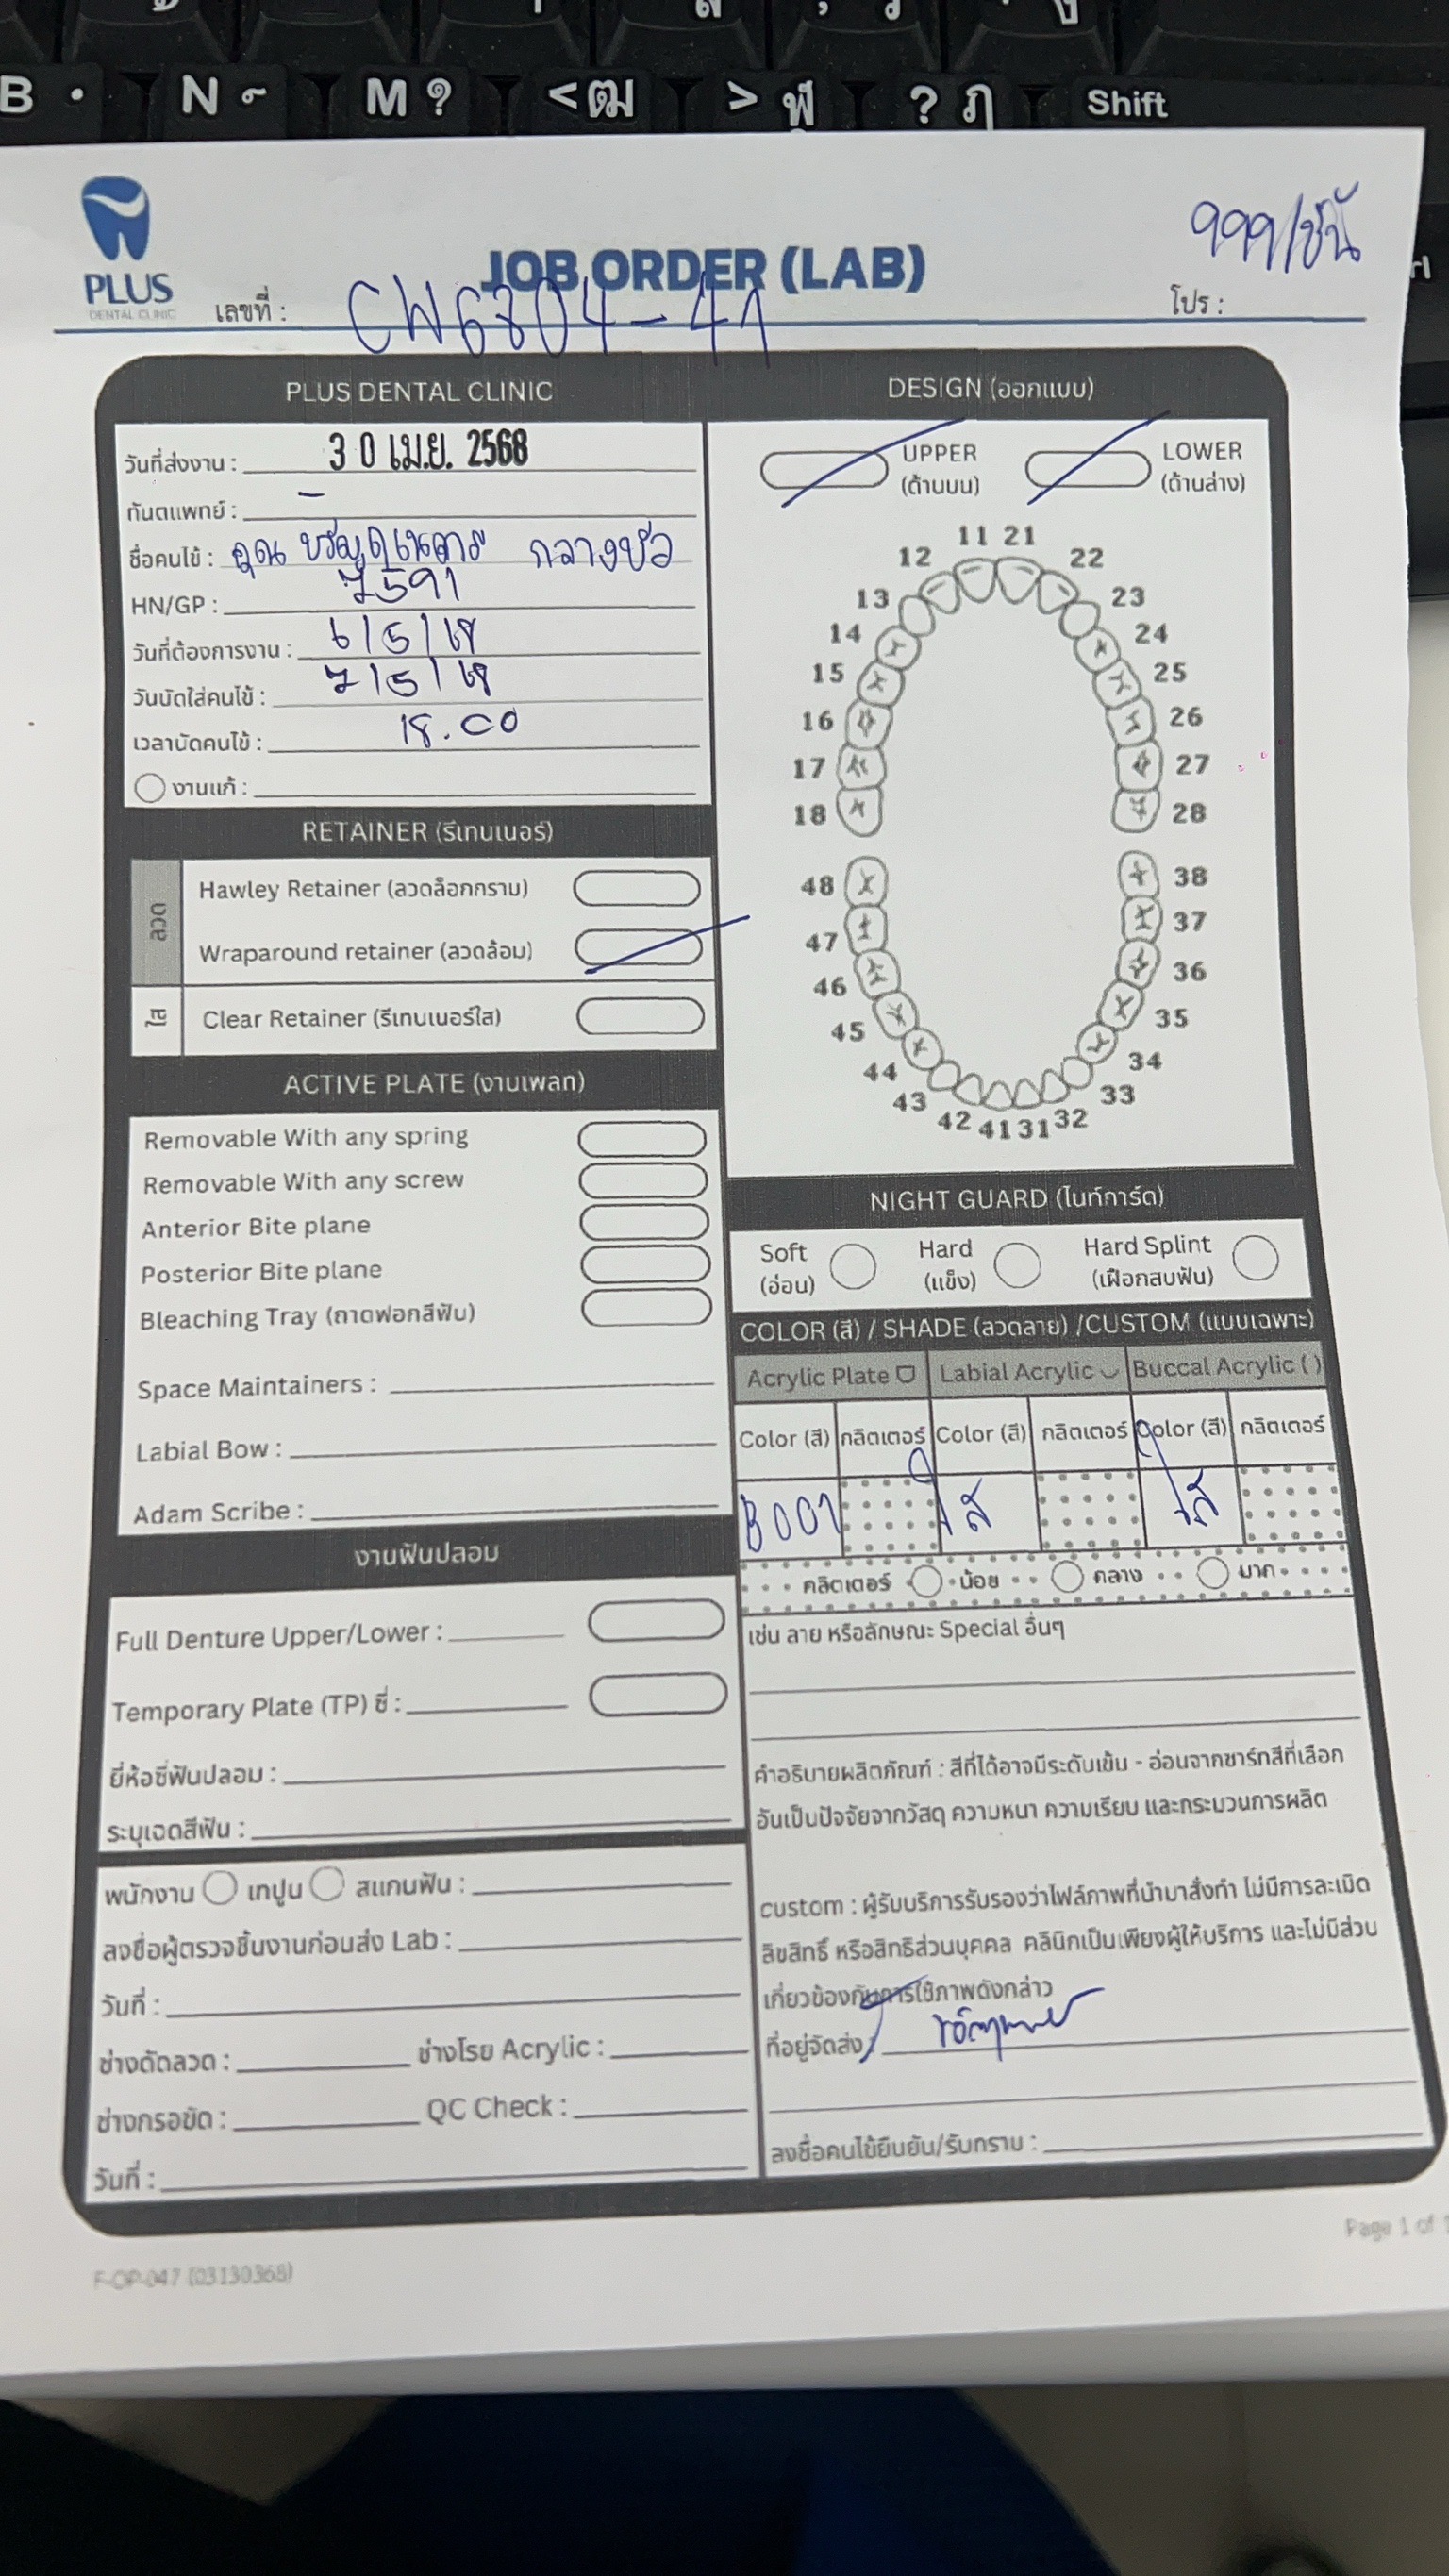 B
N
M ?
< ฒ
> ฬ
? ฦ
Shift
PLUS
DENTAL CLINIC
JOB ORDER (LAB)
999/ชิ้น
เลขที่ : CW6804-41
โปร :
PLUS DENTAL CLINIC
วันที่ส่งงาน : 30 เม.ย. 2568
ทันตแพทย์ : -
ชื่อคนไข้ : คุณ กลางบัว
HN/GP : 7591
วันที่ต้องการงาน : 6/5/68
วันนัดใส่คนไข้ : 7/5/68
เวลานัดคนไข้ : 18.00
งานแก้ :
RETAINER (รีเทนเนอร์)
ลวด
Hawley Retainer (ลวดล็อกกราม)
Wraparound retainer (ลวดล้อม)
ใส
Clear Retainer (รีเทนเนอร์ใส)
ACTIVE PLATE (งานเพลท)
Removable With any spring
Removable With any screw
Anterior Bite plane
Posterior Bite plane
Bleaching Tray (ถาดฟอกสีฟัน)
Space Maintainers :
Labial Bow :
Adam Scribe :
งานฟันปลอม
Full Denture Upper/Lower :
Temporary Plate (TP) ซี่ :
ยี่ห้อซี่ฟันปลอม :
ระบุเฉดสีฟัน :
พนักงาน เทปูน สแกนฟัน :
ลงชื่อผู้ตรวจชิ้นงานก่อนส่ง Lab :
วันที่ :
ช่างดัดลวด : ช่างโรย Acrylic :
ช่างกรอขัด : QC Check :
วันที่ :
DESIGN (ออกแบบ)
UPPER
(ด้านบน)
LOWER
(ด้านล่าง)
11 21
12 22
13 23
14 24
15 25
16 26
17 27
18 28
48 38
47 37
46 36
45 35
44 34
43 33
42 41 31 32
NIGHT GUARD (ไนท์การ์ด)
Soft
(อ่อน)
Hard
(แข็ง)
Hard Splint
(เฝือกสบฟัน)
COLOR (สี) / SHADE (ลวดลาย) /CUSTOM (แบบเฉพาะ)
Acrylic Plate Labial Acrylic Buccal Acrylic ( )
Color (สี) กลิตเตอร์ Color (สี) กลิตเตอร์ Color (สี) กลิตเตอร์
B001 ใส ใส
กลิตเตอร์ น้อย กลาง มาก
เช่น ลาย หรือลักษณะ Special อื่นๆ
คำอธิบายผลิตภัณฑ์ : สีที่ได้อาจมีระดับเข้ม - อ่อนจากชาร์ทสีที่เลือก
อันเป็นปัจจัยจากวัสดุ ความหนา ความเรียบ และกระบวนการผลิต
custom : ผู้รับบริการรับรองว่าไฟล์ภาพที่นำมาสั่งทำ ไม่มีการละเมิด
ลิขสิทธิ์ หรือสิทธิส่วนบุคคล คลินิกเป็นเพียงผู้ให้บริการ และไม่มีส่วน
เกี่ยวข้องกับการใช้ภาพดังกล่าว
ที่อยู่จัดส่ง :
ลงชื่อคนไข้ยืนยัน/รับทราบ :
F-OP-047 (03130368)
Page 1 of 1